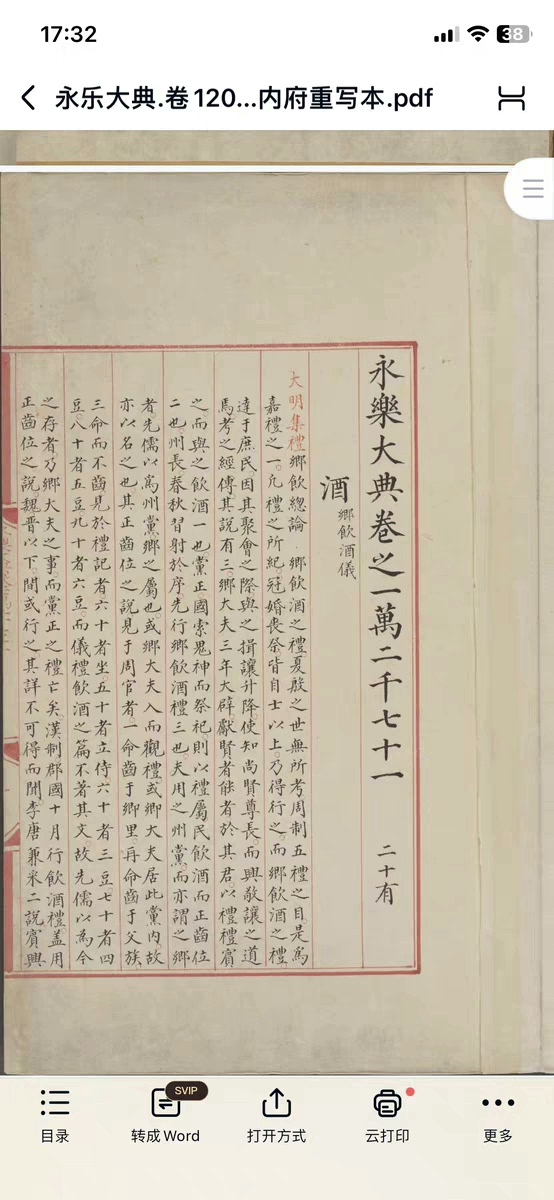 17:32
38
永乐大典.卷120...内府重写本.pdf
永樂大典卷之一萬二千七十一 二十有
酒 鄉飲酒儀
大明集禮鄉飲總論 鄉飲酒之禮夏殷之世無所考周制五禮之目是爲
嘉禮之一凡禮之所紀冠婚喪祭皆自士以上乃得行之而鄉飲酒之禮
達于庶民因其聚會之際與之揖讓升降使知尚賢尊長而興敬讓之道
焉考之經傳其說有三鄉大夫三年大辟獻賢者能者於其君以禮禮賓
之而與之飲酒一也黨正國索鬼神而祭祀則以禮屬民飲酒而正齒位
二也州長春秋習射於序先行鄉飲酒禮三也夫用之州黨而亦謂之鄉
者先儒以爲州黨鄉之屬也或鄉大夫入而觀禮或鄉大夫居此黨内故
亦以名之也其正齒位之說見于周官者一命齒于鄉里再命齒于父族
三命而不齒見於禮記者六十者坐五十者立侍六十者三豆七十者四
豆八十者五豆九十者六豆而儀禮飲酒之篇不著其文故先儒以爲今
之存者乃鄉大夫之事而黨正之禮亡矣漢制郡國十月行飲酒禮蓋用
正齒位之說魏晋以下閒或行之其詳不可得而聞李唐兼采二說賓興
目录
SVIP
转成Word
打开方式
云打印
更多